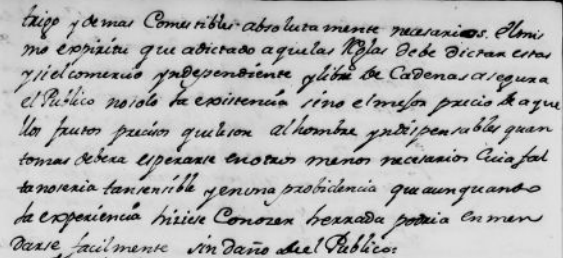 trigo y demas Comestibles absolutamente necesarios. El mis
mo expiritu que adictado aquelas Reglas debe dictar estas
y si el comercio yndependiente y libre de Cadenas asegura
el Publico no solo la existencia sino el mejor precio de aque
llos frutos precisos que le son al hombre yndispensables quan
to mas debera esperarse en otros menos necesarios Cuia fal
ta no seria tan sensible y en una probidencia que aun quando
la experiencia hiciese Conozer herrada podria enmen
darse facilmente sin daño del Publico: